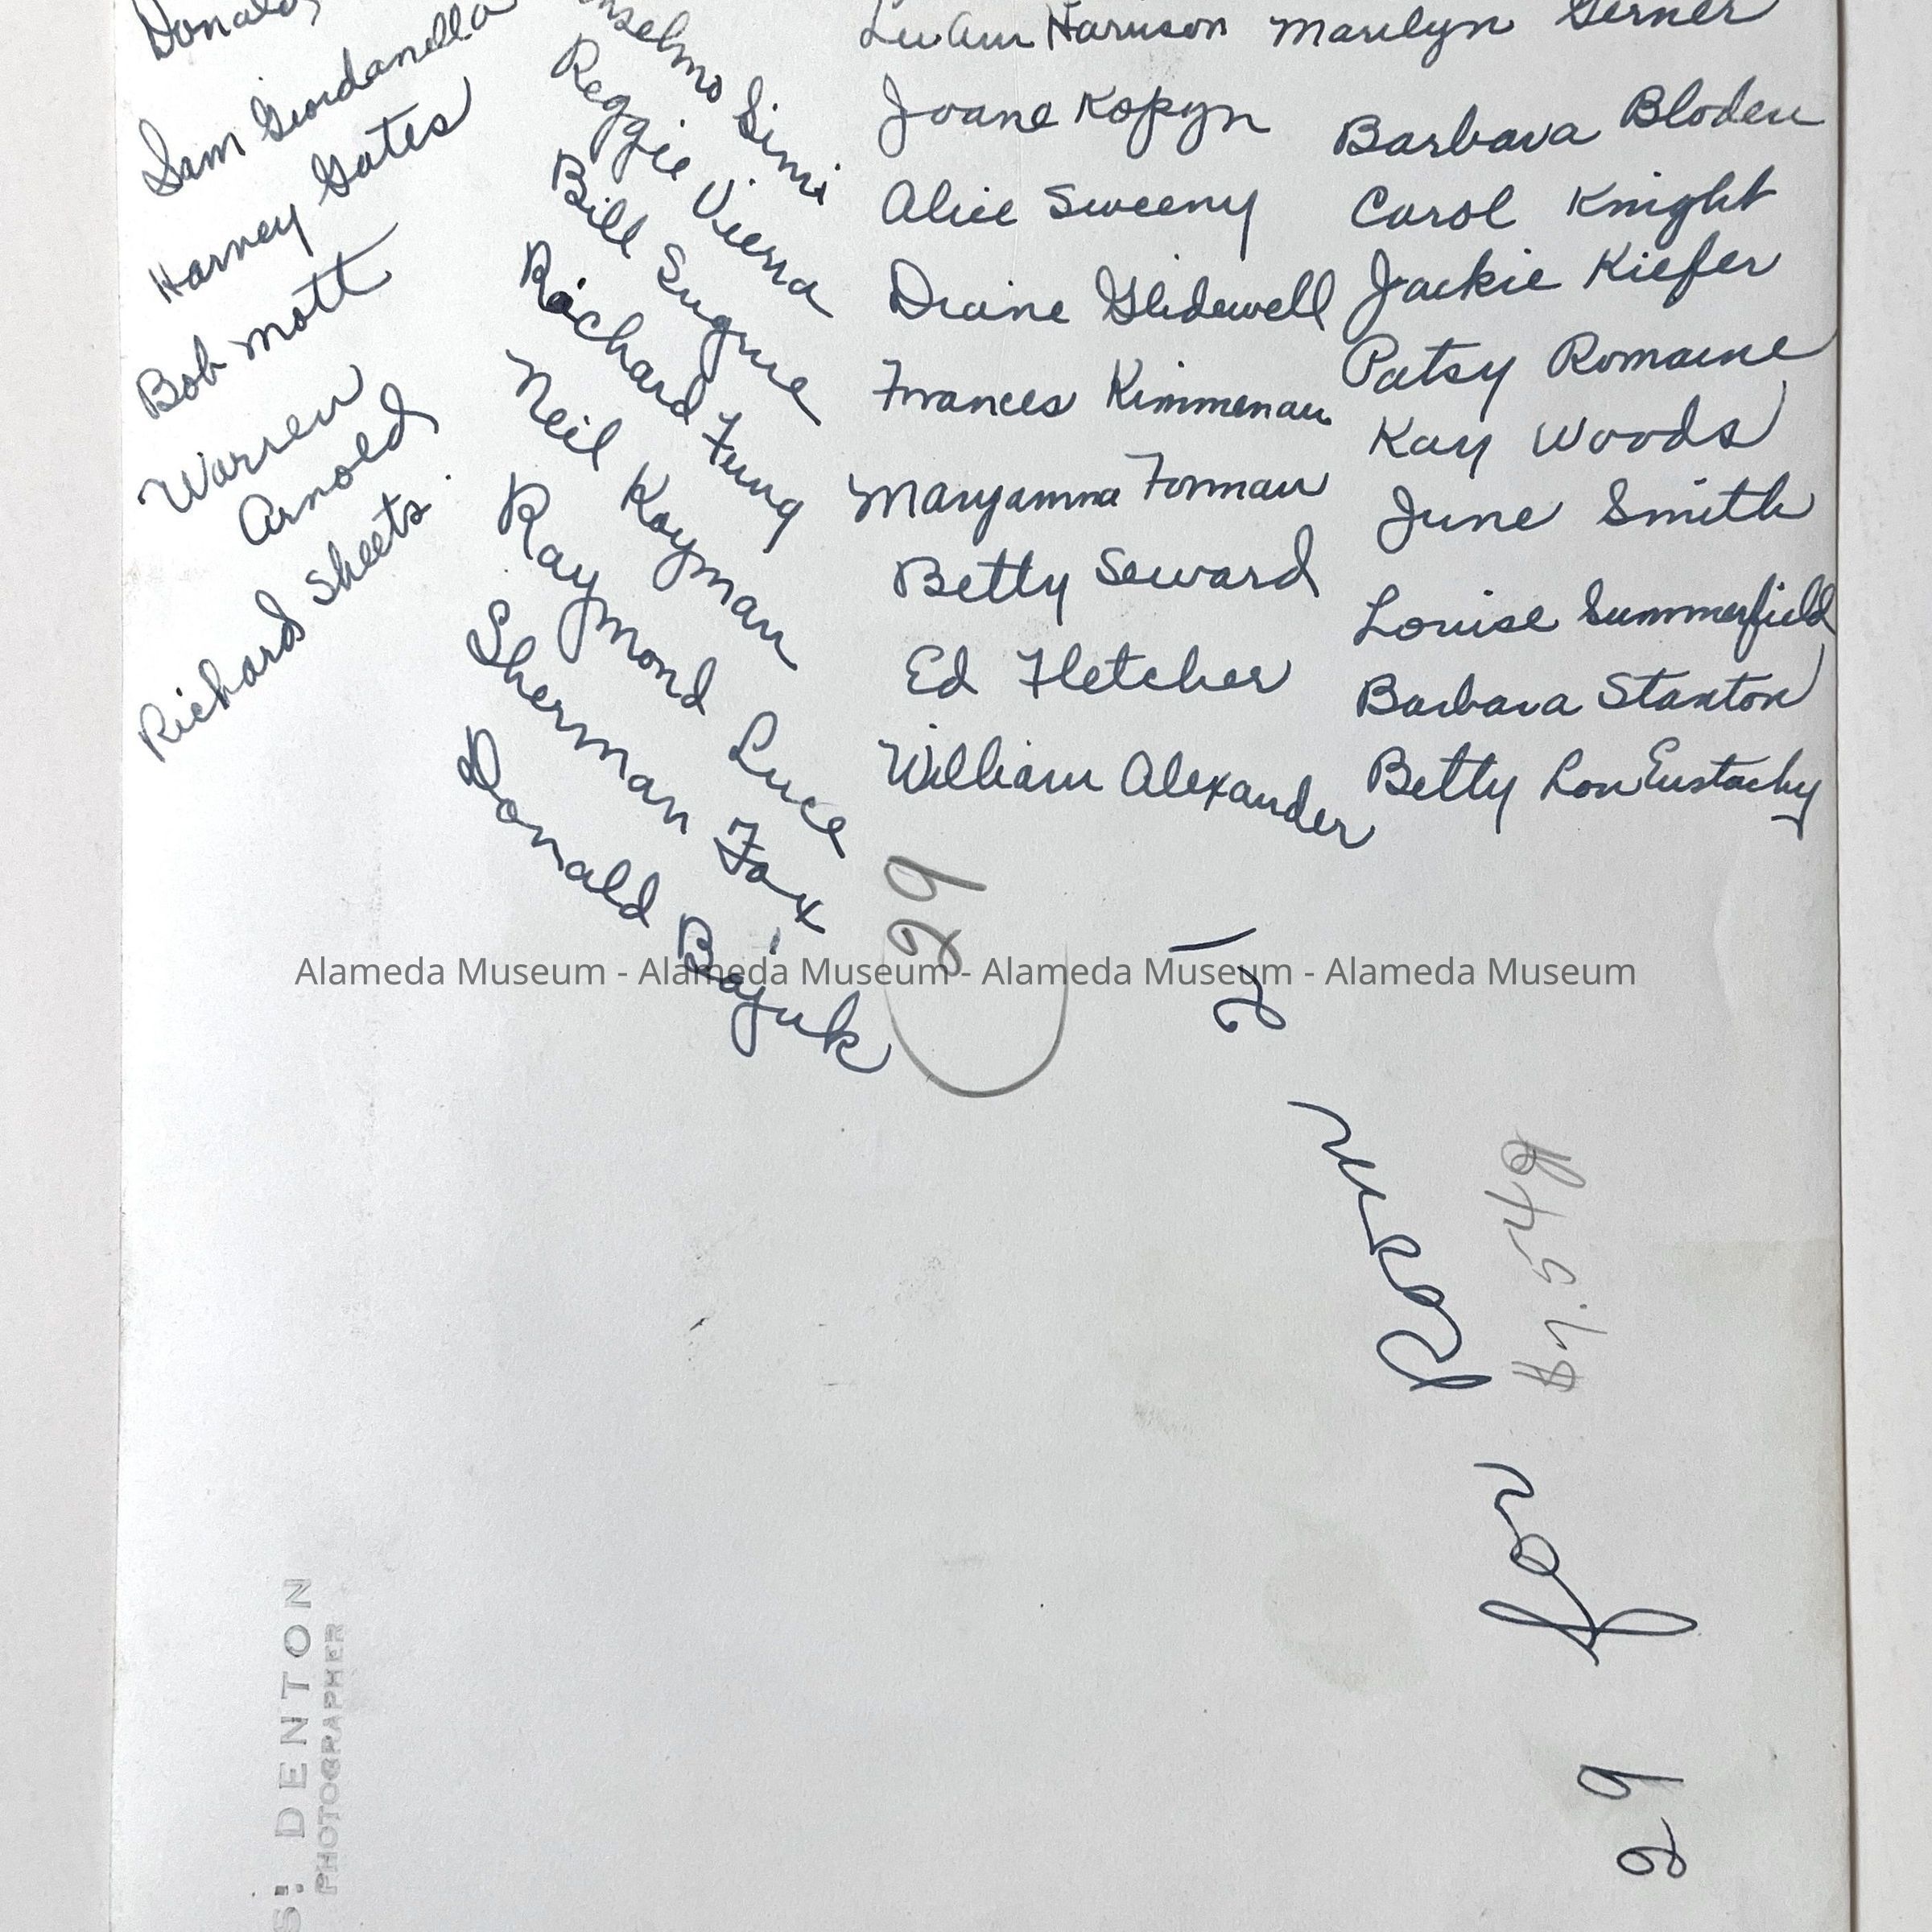 Donald
Sam Giordanella
Harney Gates
Bob Mott
Warren
Arnold
Richard Sheets.
Simi
Reggie Vierra
Bill Sugrue
Richard Fung
Neil Kayman
Raymond Luce
Sherman Fox
Donald Bajuk
LuAnn Harrison
Joane Kopyn
Alice Sweeny
Diane Glidewell
Frances Kimmenau
Maryanna Forman
Betty Seward
Ed Fletcher
William Alexander
Marilyn Gerner
Barbara Bloden
Carol Knight
Jackie Kiefer
Patsy Romaine
Kay Woods
June Smith
Louise Summerfield
Barbara Stanton
Betty Lou Eustachy
29
Alameda Museum - Alameda Museum - Alameda Museum - Alameda Museum
29 for
DENTON
PHOTOGRAPHER